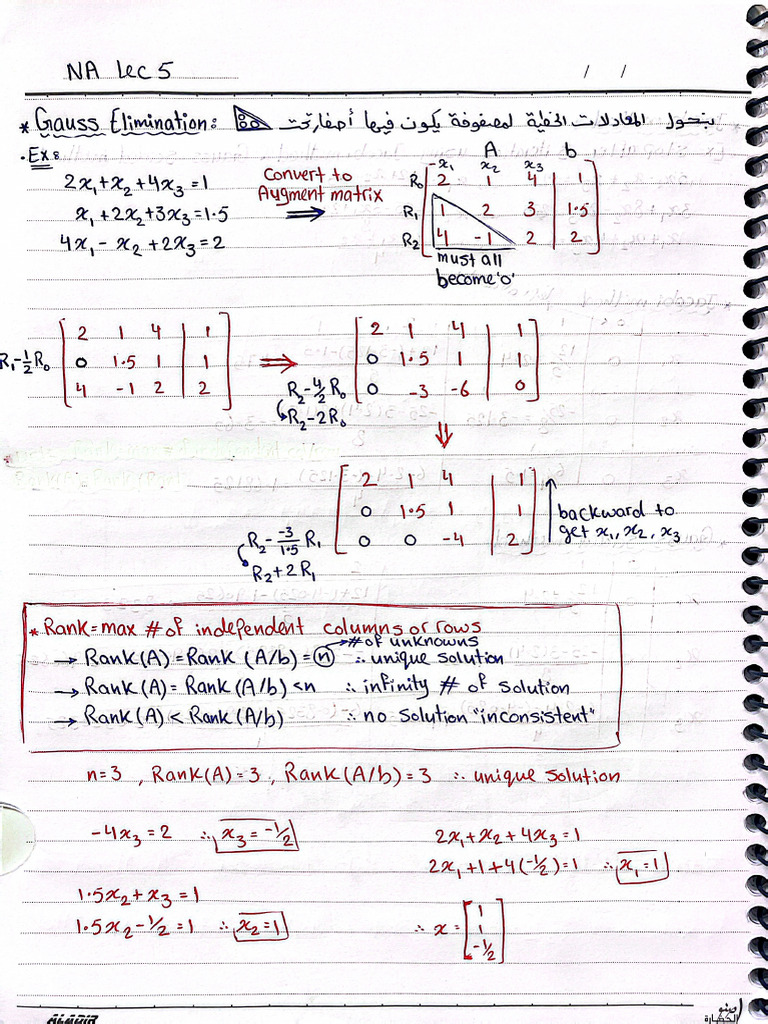 NA Lec 5 / /
* Gauss Elimination: بنحول المعادلات الخطية لمصفوفة يكون فيها أصفار تحت
• Ex:
2x₁+x₂+4x₃=1
x₁+2x₂+3x₃=1.5
4x₁-x₂+2x₃=2
Convert to
Augment matrix
A b
x₁ x₂ x₃
R₀ 2 1 4 1
R₁ 1 2 3 1.5
R₂ 4 -1 2 2
must all
become '0'
2 1 4 1
R₁-½R₀ 0 1.5 1 1
4 -1 2 2
2 1 4 1
0 1.5 1 1
R₂-4/2 R₀ 0 -3 -6 0
R₂-2R₀
2 1 4 1
0 1.5 1 1
R₂- -3/1.5 R₁ 0 0 -4 2
R₂+2R₁
backward to
get x₁, x₂, x₃
* Rank = max # of independent columns or rows
# of unknowns
→ Rank(A) = Rank (A/b) = n ∴ unique solution
→ Rank(A) = Rank (A/b) < n ∴ infinity # of solution
→ Rank(A) < Rank(A/b) ∴ no solution "inconsistent"
n=3 , Rank(A)=3 , Rank(A/b)=3 ∴ unique solution
-4x₃=2 ∴ x₃=-1/2
1.5x₂+x₃=1
1.5x₂-1/2=1 ∴ x₂=1
2x₁+x₂+4x₃=1
2x₁+1+4(-1/2)=1 ∴ x₁=1
∴ x = 1
1
-1/2
ALADIB